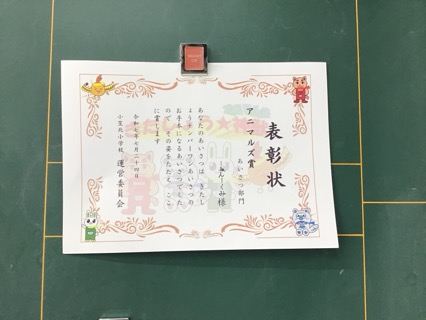 表彰状
アニマルズ賞
あいさつ部門
くみ様
あなたのあいさつは、きたし
ょうナンバーワンあいさつの
お手本になるあいさつでした
ので、その姿をたたえ、ここ
に賞します
令和七年七月二十四日
小笠北小学校 運営委員会